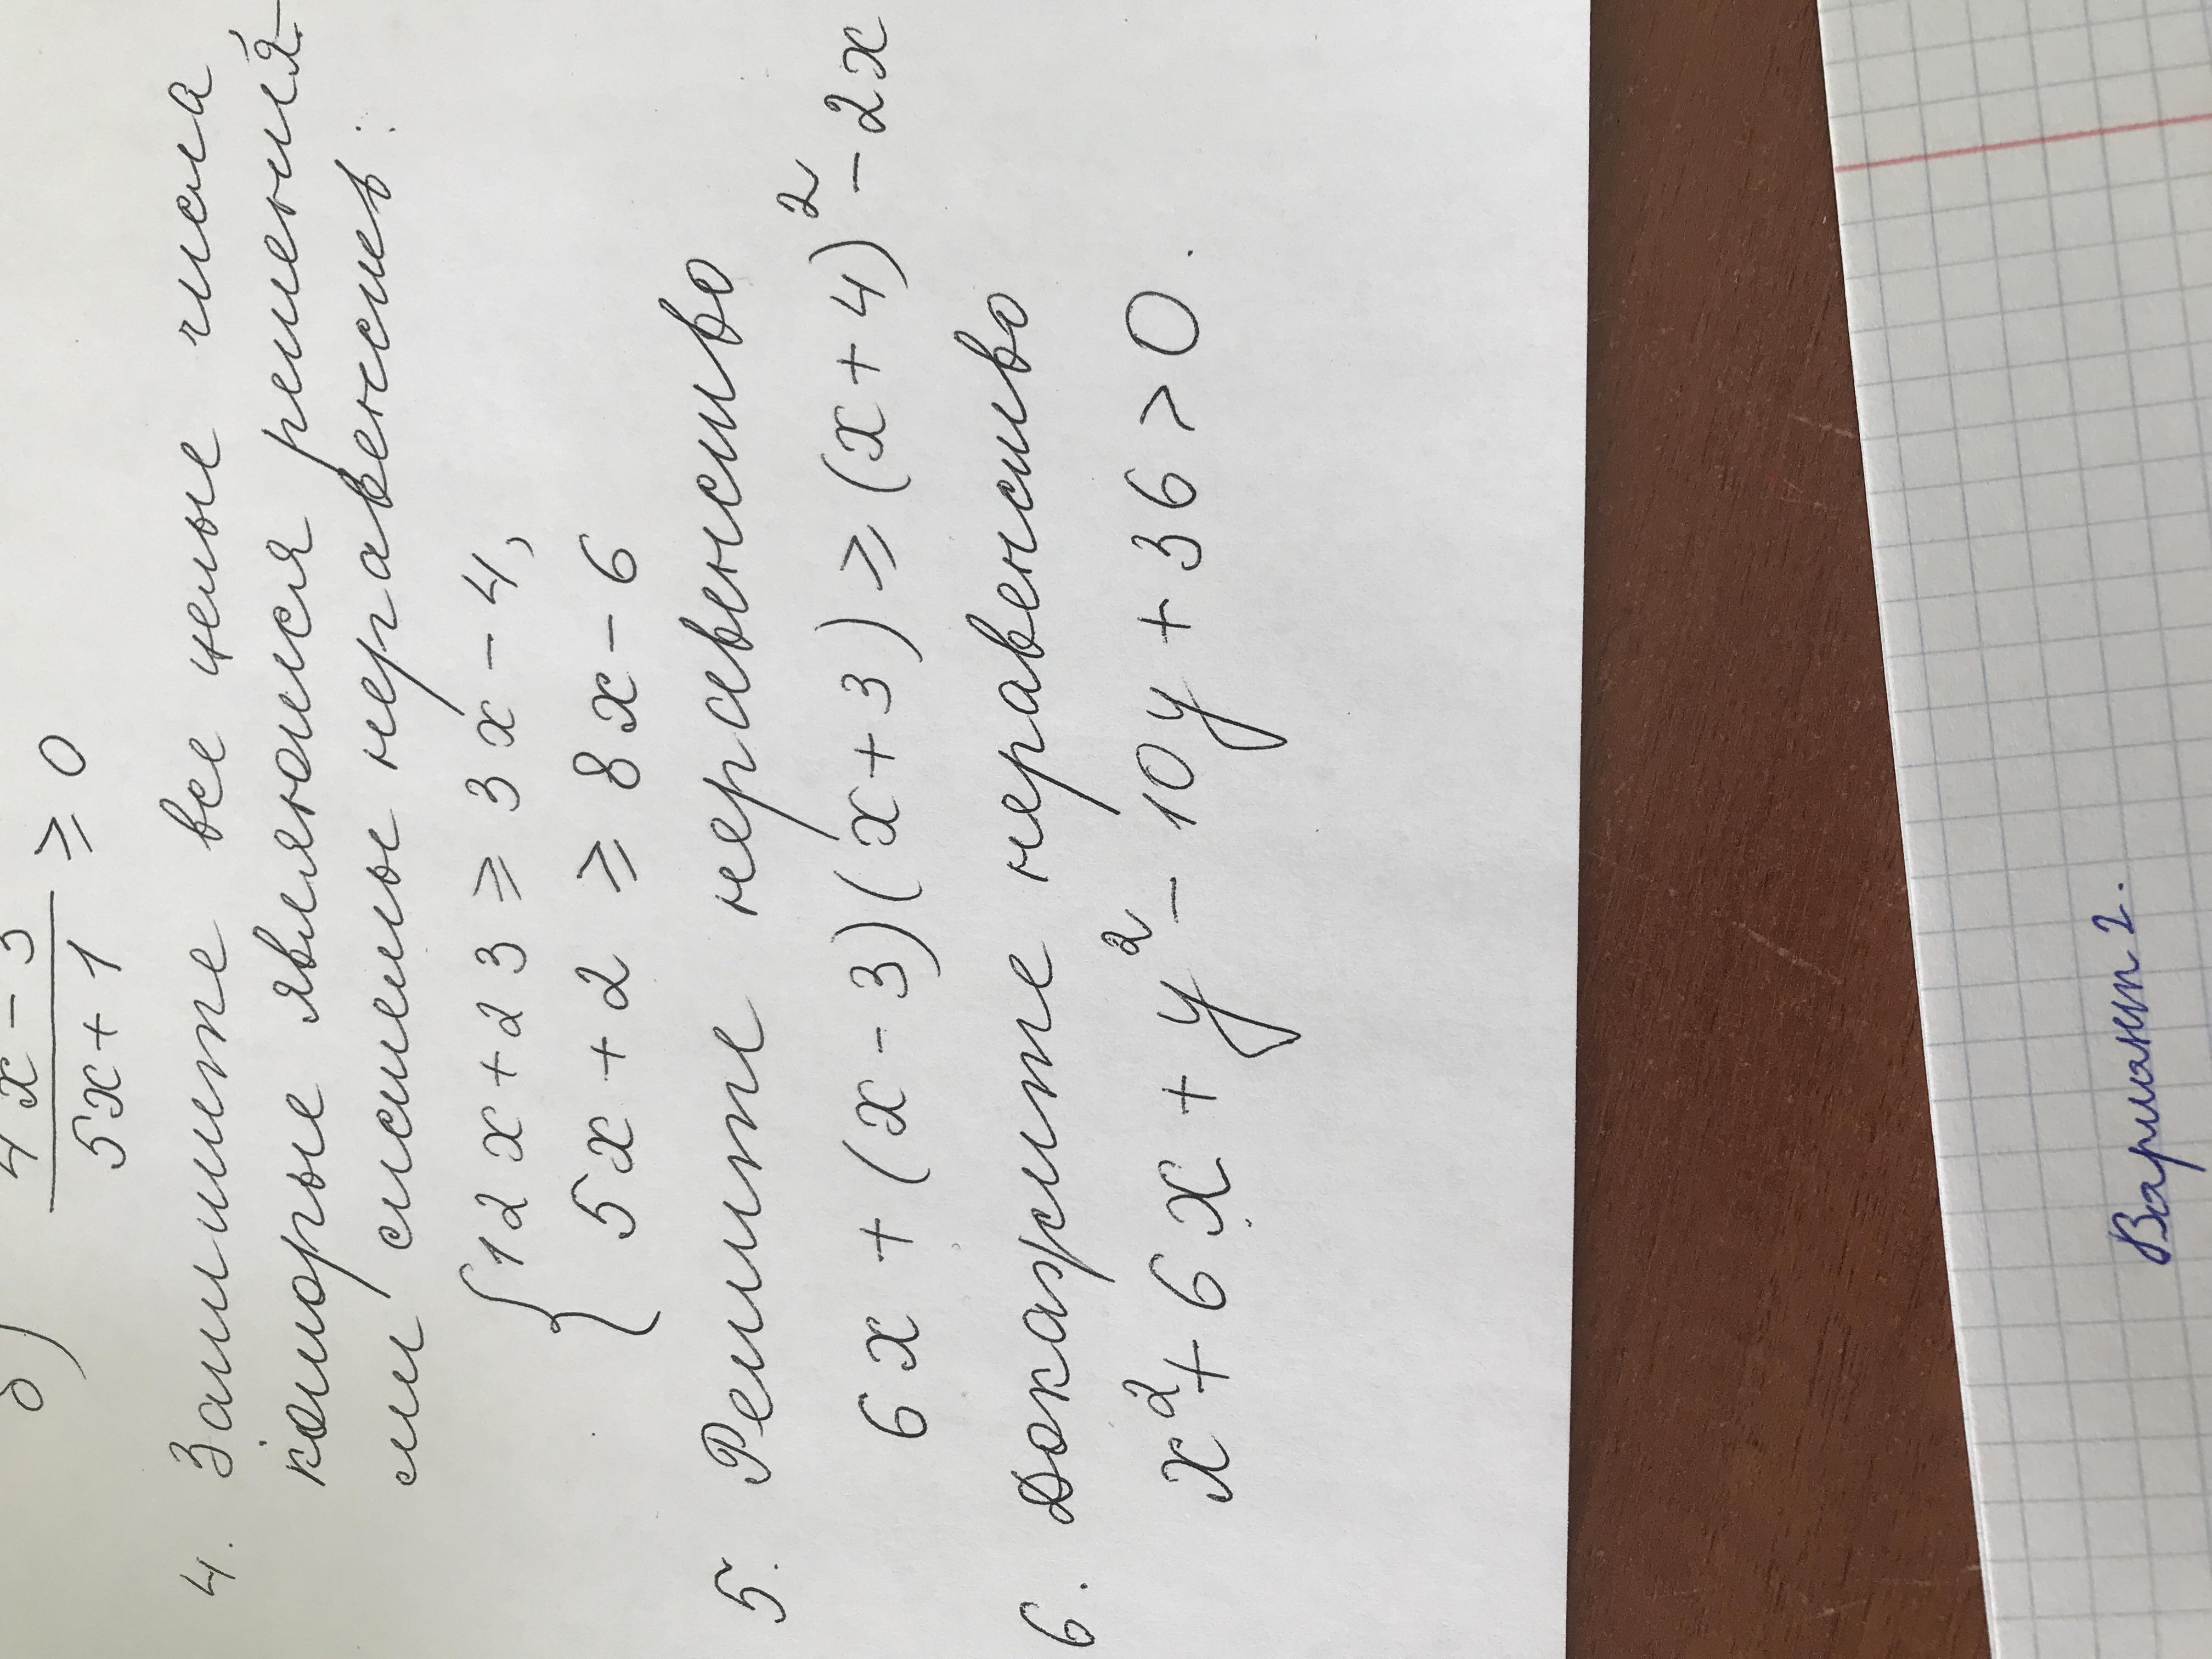 б) 4x - 3 / 5x + 1 ⩾ 0
4. Запишите все целые числа
которые являются решения-
ми системы неравенств:
{ 12x + 23 ⩾ 3x - 4,
5x + 2 ⩾ 8x - 6
5. Решите неравенство
6x + (x - 3)(x + 3) ⩾ (x + 4)² - 2x
6. Докажите неравенство
x² + 6x + y² - 10y + 36 > 0.
Вариант 2.